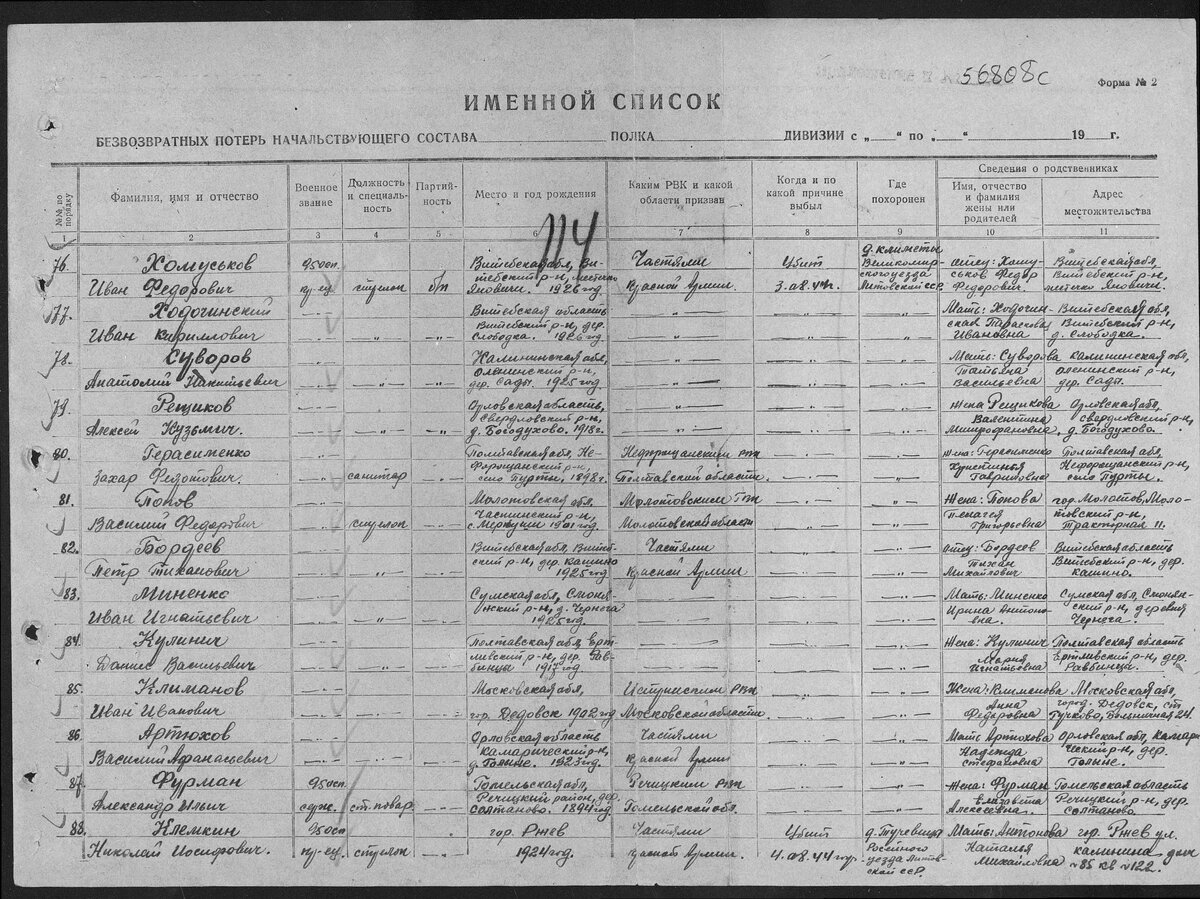 56808с
Форма № 2
ИМЕННОЙ СПИСОК
БЕЗВОЗВРАТНЫХ ПОТЕРЬ НАЧАЛЬСТВУЮЩЕГО СОСТАВА ПОЛКА ДИВИЗИИ с „ “ по „ “ 19 г.
№№ по порядку
Фамилия, имя и отчество
Военное звание
Должность и специальность
Партийность
Место и год рождения
Каким РВК и какой области призван
Когда и по какой причине выбыл
Где похоронен
Сведения о родственниках
Имя, отчество и фамилия жены или родителей
Адрес местожительства
1 2 3 4 5 6 7 8 9 10 11
114
76. Хомуськов Иван Федорович 95осп кр-ец стрелок б/п Витебская обл, Витебский р-н, местечко Яновичи. 1926 год Частями Красной Армии. Убит 3.08.44г. Литовской ССР. отец: Хомуськов Федор Федорович. Витебская обл, Витебский р-н, местечко Яновичи.
77. Ходогинский Иван Кирилович Витебская область Витебский р-н, дер. Слободка. 1926 год Мать: Ходогинская Параскова Ивановна Витебская обл, Витебский р-н, д. Слободка.
78. Суворов Анатолий Никитьевич Калининская обл, Оленинский р-н, дер. Сады. 1925 год Мать: Суворова Татьяна Васильевна Калининская обл, Оленинский р-н, дер. Сады.
79. Рещиков Алексей Кузьмич. Орловская область, Свердловский р-н, д. Богодухово. 1918г. Жена Рещикова Валентина Митрофановна Орловская обл, Свердловский р-н, д. Богодухово.
80. Герасименко Захар Федотович санитар Полтавская обл, Нефорощанский р-н, село Пурты, 1898г. Нефорощанским РВК Полтавской области. Жена: Герасименко Христинья Гавриловна Полтавская обл, Нефорощанский р-н, село Пурты.
81. Попов Василий Федорович стрелок Молотовская обл. Частинский р-н, 1901 год. Молотовским РВК Молотовской области Жена: Попова Пелагея Григорьевна гор. Молотов, Молотовский р-н, Тракторная 11.
82. Бордеев Петр Тиханович Витебская обл, Витебский р-н, дер. Кашино 1925 год Частями Красной Армии Отец: Бордеев Тихан Михайлович Витебская область Витебский р-н, дер. Кашино.
83. Миненко Иван Игнатьевич Сумская обл, д. Чернега 1925 год. Мать: Миненко Ирина Антоновна. Сумская обл, деревня Чернега.
84. Кулинич Данил Васильевич Полтавская обл, дер. Равбинцы 1917 год Жена: Кулинич Мария Игнатьевна Полтавская область дер. Равбинцы.
85. Климанов Иван Иванович Московская обл, гор. Дедовск 1902 год Истринским РВК Московской области Жена: Климанова Анна Федоровна Московская обл, город Дедовск, ст Гучково, Больничная 24.
86 Артюхов Василий Афанасьевич Орловская область Камарический р-н, д. Голыне. 1923 год. Частями Красной Армии Мать Артюхова Надежда Стефановна Орловская обл, Камарический р-н, дер. Голыне.
87. Фурман Александр Ильич 95осп серж. ст. повар Гомельская обл, Речицкий район, дер. Солтаново 1894 год. Речицким РВК Гомельской обл. Жена: Фурман Елизовета Алексеевна. Гомельская область Речицкий р-н, дер. Солтаново.
88. Клемкин Николай Иосифович. 95осп кр-ец. стрелок гор. Ржев 1924 год. Частями Красной Армии. Убит 4.08.44 год. уезда Литовской ССР. Мать: Антонова Наталья Михайловна гор. Ржев ул. Калинина дом №85 кв №126.